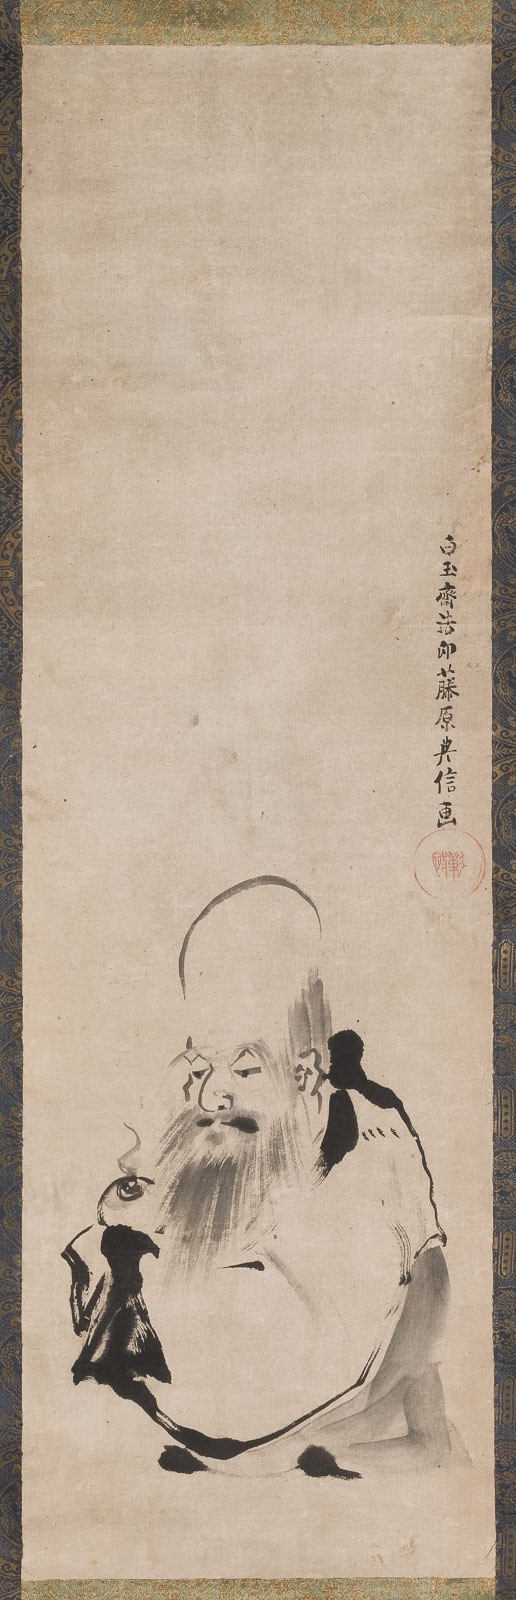 白玉齋法印藤原典信画